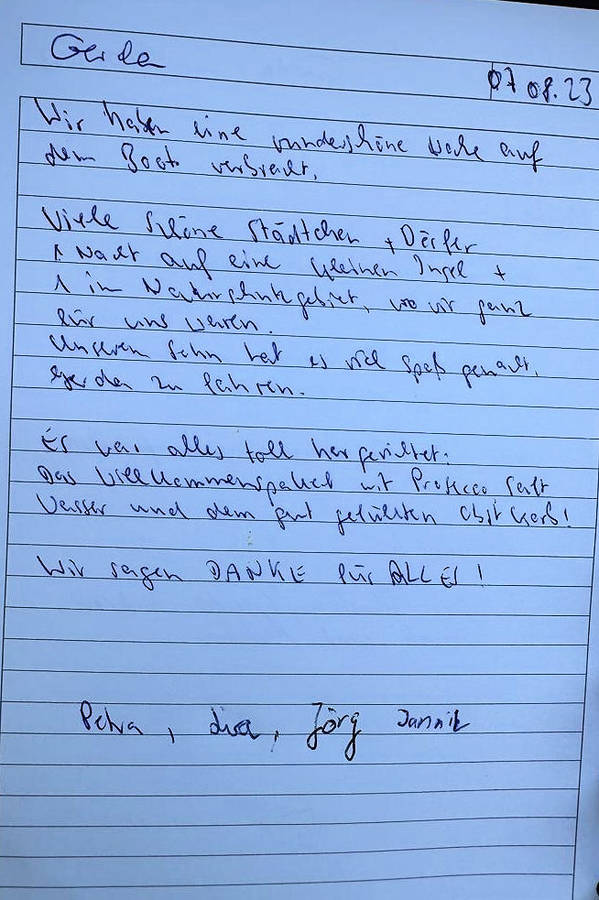 Gerda
07 08.23
Wir haben eine wunderschöne Woche auf
dem Boot verbracht.
Viele schöne Städtchen + Dörfer
1 Nacht auf eine kleinen Insel +
1 im Naturschutzgebiet, wo wir ganz
für uns waren.
Unseren Sohn hat es viel Spaß gemacht,
Gerda zu fahren.
Es war alles toll hergerichtet.
Das Willkommenspaket mit Prosecco Saft
Wasser und dem gut gefüllten Obstkorb!
Wir sagen DANKE für ALLES!
Petra, Lisa, Jörg Jannik